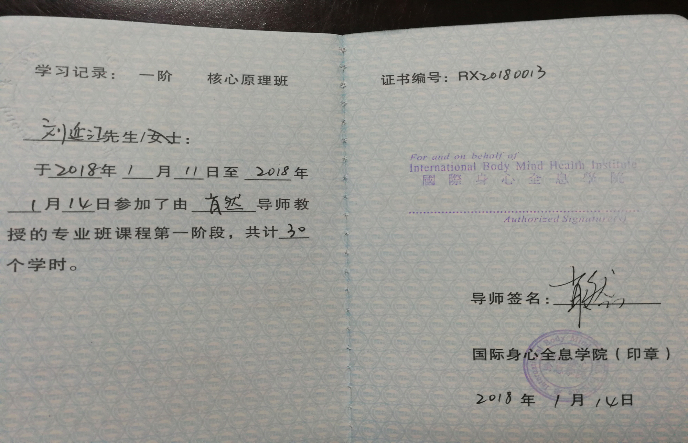 学习记录： 一阶 核心原理班
刘近江先生/女士：
于2018年1月11日至2018年
1月14日参加了由肯然导师教
授的专业班课程第一阶段，共计30
个学时。
证书编号：RX20180013
For and on behalf of
International Body Mind Health Institute
國際身心全息學院
Authorized Signature(s)
导师签名：
国际身心全息学院（印章）
2018年1月14日